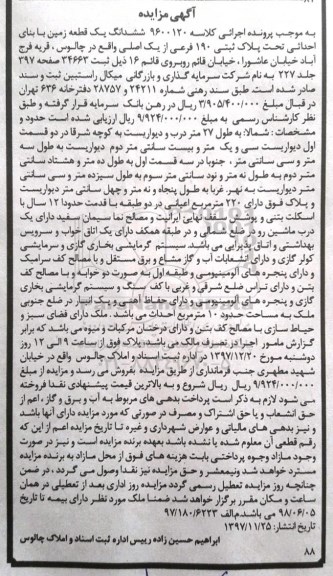 آگهی مزایده
به موجب پرونده اجرائی کلاسه ۹۶۰۰۱۲۰ ششدانگ یک قطعه زمین با بنای
احداثی تحت پلاک ثبتی ۱۹۰ فرعی از یک اصلی واقع در چالوس ، قریه فرج
آباد خیابان عاشورا، خیابان قائم روبروی قائم ۱۶ ذیل ثبت ۳۴۶۶۳ صفحه ۳۹۷
جلد ۲۲۷ به نام شرکت سرمایه گذاری و بازرگانی میکال راستبین ثبت و سند
صادر شده است. طبق سند رهنی شماره ۲۴۲۱۱ و ۲۸۷۵۷ دفترخانه ۶۳۶ تهران
در قبال مبلغ ۳/۹۰۵/۴۰۰/۰۰۰ ریال در رهن بانک سرمایه قرار گرفته و طبق
نظر کارشناس رسمی به مبلغ ۹/۹۲۴/۰۰۰/۰۰۰ ریال ارزیابی شده است حدود و
مشخصات : شمالا: به طول ۲۷ متر درب و دیواریست به کوچه شرقا در دو قسمت
اول دیواریست سی و یک متر و بیست سانتی متر دوم دیواریست به طول سه
متر و سی سانتی متر ، جنوبا در سه قسمت اول به طول ده متر و هشتاد سانتی
متر دوم به طول نه متر و نود سانتی متر سوم به طول سیزده متر و سی سانتی
متر دیواریست به نهر. غربا به طول پنجاه و نه متر و چهل سانتی متر دیواریست
و پلاک فوق دارای ۲۲۰ مترمربع اعیانی در دو طبقه با قدمت حدودا ۱۲ سال با
اسکلت بتنی و پوشش نهایی ایرانیت و مصالح نما سیمان سفید دارای یک
درب ماشین رو در ضلع شمالی و در طبقه همکف دارای یک اتاق خواب و سرویس
بهداشتی و اتاق پذیرایی می باشد. سیستم گرمایشی بخاری گازی و سرمایشی
کولر گازی و دارای انشعابات آب و گاز مشاع و برق مستقل و با مصالح کف سرامیک
و دارای پنجره های آلومینیومی و طبقه اول به صورت دو خوابه و با مصالح کف
بتن و دارای تراس ضلع شرقی و غربی با کف سنگ و سیستم گرمایشی بخاری
گازی و پنجره های آلومینیومی و دارای حفاظ آهنی و یک انبار در ضلع جنوبی
ملک به مساحت حدود ۱۰ مترمربع احداث می باشد . ملک دارای فضای سبز و
حیاط سازی با مصالح کف بتن و دارای درختان مرکبات و میوه می باشد که برابر
گزارش مامور اجرا در تصرف مالک می باشد. پلاک فوق از ساعت ۹ الی ۱۲ روز
دوشنبه مورخ ۱۳۹۷/۱۲/۲۰ در اداره ثبت اسناد و املاک چالوس واقع در خیابان
شهید مطهری جنب فرمانداری از طریق مزایده بفروش می رسد و مزایده از مبلغ
۹/۹۲۴/۰۰۰/۰۰۰ ریال شروع و به بالاترین قیمت پیشنهادی نقدا فروخته
می شود لازم به ذکر است پرداخت بدهی های مربوط به آب و برق و گاز، اعم از
حق انشعاب و یا حق اشتراک و مصرف در صورتی که مورد مزایده دارای آنها باشد
و نیز بدهی های مالیاتی و عوارض شهرداری و غیره تا تاریخ مزایده اعم از این که
رقم قطعی آن معلوم شده یا نشده باشد بعهده برنده مزایده است و نیز در صورت
وجود مازاد وجوه پرداختی بابت هزینه های فوق از محل مازاد به برنده مزایده
مسترد خواهد شد ونیمعشر و حق مزایده نیز نقدا وصول می گردد ، در ضمن
چنانچه روز مزایده تعطیل رسمی گردد مزایده روز اداری بعد از تعطیلی در همان
ساعت و مکان مقرر برگزار خواهد شد ضمنا ملک مورد نظر دارای بیمه تا تاریخ
۹۸/۰۶/۰۵ می باشد.م/الف ۹۷/۱۸۰/۶۲۳۳
تاریخ انتشار: ۱۳۹۷/۱۱/۲۵
ابراهیم حسین زاده رییس اداره ثبت اسناد و املاک چالوس
۸۸